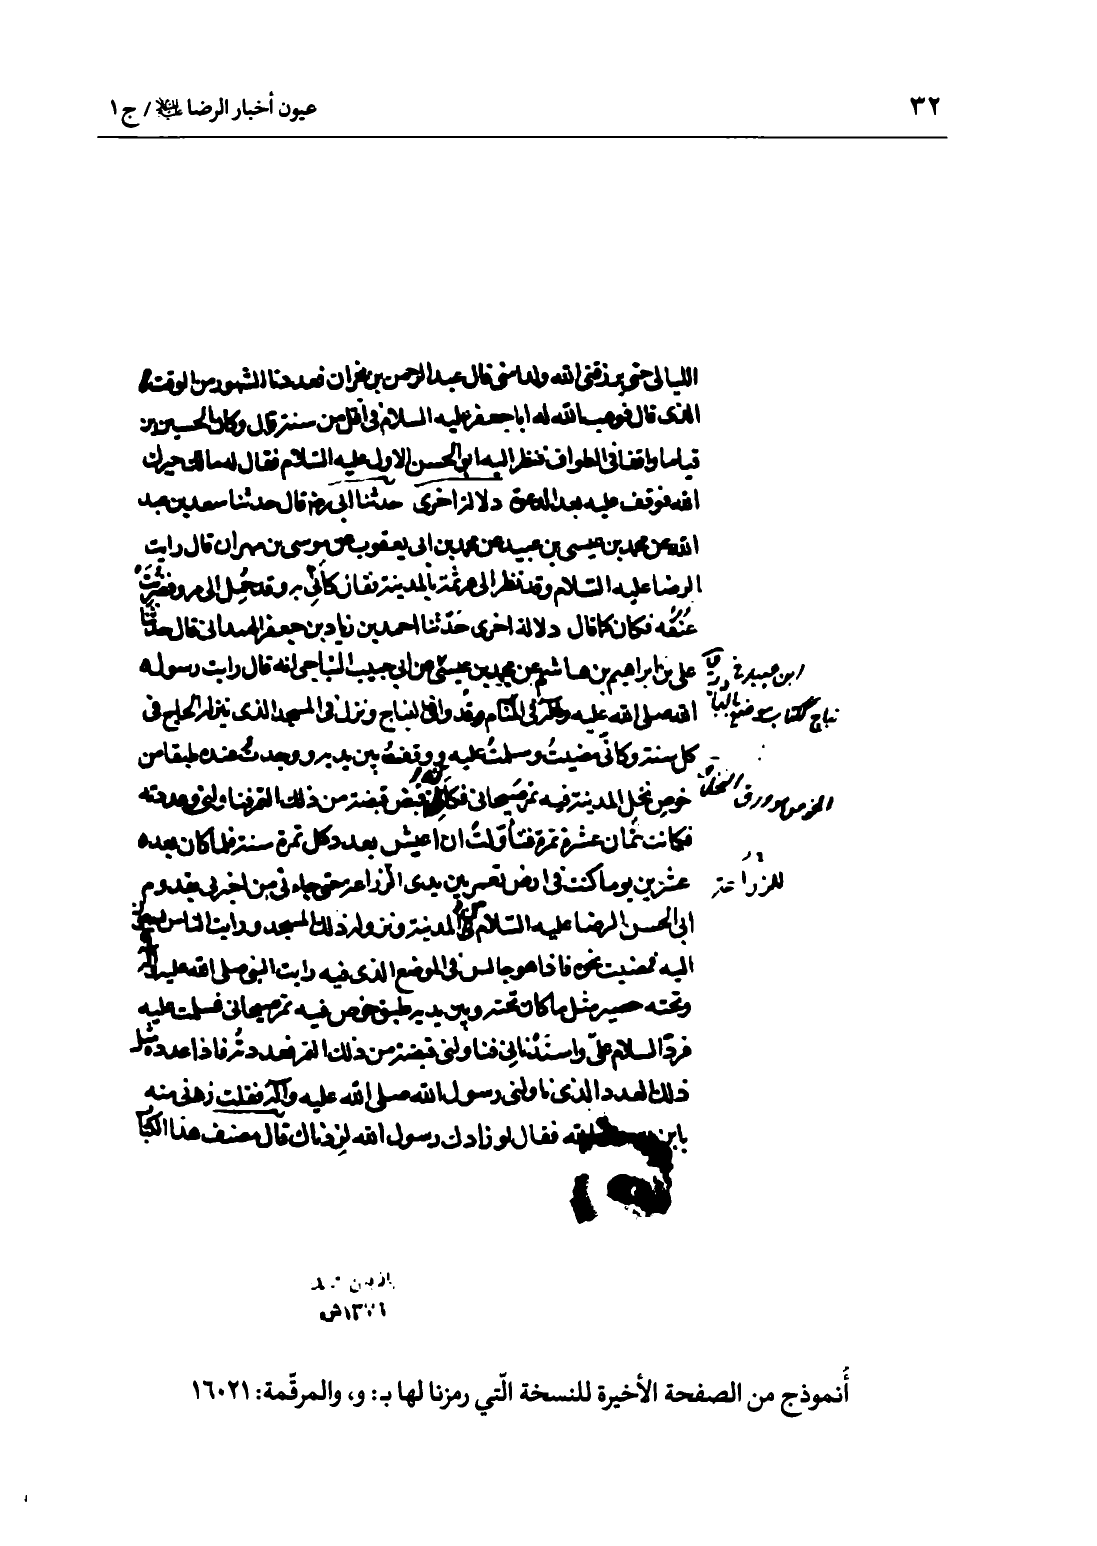 ٣٢
عيون أخبار الرضا ﷷ / ج١
الليالى حتى يرزقنى الله ولدا منى قال عبد الرحمن بن نجران فعددنا الشهور من الوقت
الذى قال فوهب الله له ابا جعفر عليه السلام فى اقل من سنة قال وكان الحسين بن
قياما واقفا فى الطواف فنظر اليه ابو الحسن الاول عليه السّلام فقال له مالك حيرك
الله فوقف عليه بعد الدعوة دلالة اخرى حدثنا ابى رضه قال حدثنا سعد بن عبد
الله عن محمد بن عيسى بن عبيد عن محمد بن ابى يعقوب عن موسى بن مهران قال رايت
الرضا عليه السّلام وقد نظر الى هرثمة بالمدينة فقال كأنّى به وقد حُمِل الى مرو فضربت
عُنُقُه فكان كما قال دلالة اخرى حَدّثنا احمد بن زياد بن جعفر الهمدانى قال حدّثنا
على بن ابراهيم بن هاشم عن محمد بن عيسى عن ابى حبيب النباجى انه قال رايت رسول
الله صلى الله عليه وآله فى المنام وقد وافى النباج ونزل فى المسجد الذى ينزله الحاج فى
كل سنة وكانّى مضيتُ وسلمتُ عليه ووقفتُ بين يديه ووجدتُ عنده طبقا من
خوص نخل المدينة فيه تمر صَيحانى فكانه قبض قبضة من ذلك التمر فناولنى فعددته
فكانت ثمان عشرة تمرة فتأولتُ ان اعيش بعدد كل تمرة سنة فلما كان بعد
عشرين يوما كنت فى ارض تعمر بين يدى الزراعة حتى جاءنى من اخبرنى بقدوم
ابى الحسن الرضا عليه السّلام من المدينة ونزوله ذلك المسجد ورايت الناس يسعون
اليه فمضيت نحوه فاذا هو جالس فى الموضع الذى فيه رايت النبى صلى الله عليه وآله
وتحته حصير مثل ما كان تحته وبين يديه طبق خوص فيه تمر صيحانى فسلمت عليه
فردّ السلام علىّ واستَدْنانى فناولنى قبضة من ذلك التمر فعددتُه فاذا عدده مثل
ذلك العدد الذى ناولنى رسول الله صلى الله عليه وآله فقلت زدنى منه
يابن رسول الله فقال لو زادك رسول الله لزدناك قال مصنف هذا الكتاب
ابن عبيد خ
الخوص ورق النخل
للزراعة
أُنموذج من الصفحة الأخيرة للنسخة الّتي رمزنا لها بـ: و، والمرقّمة: ١٦٠٢١